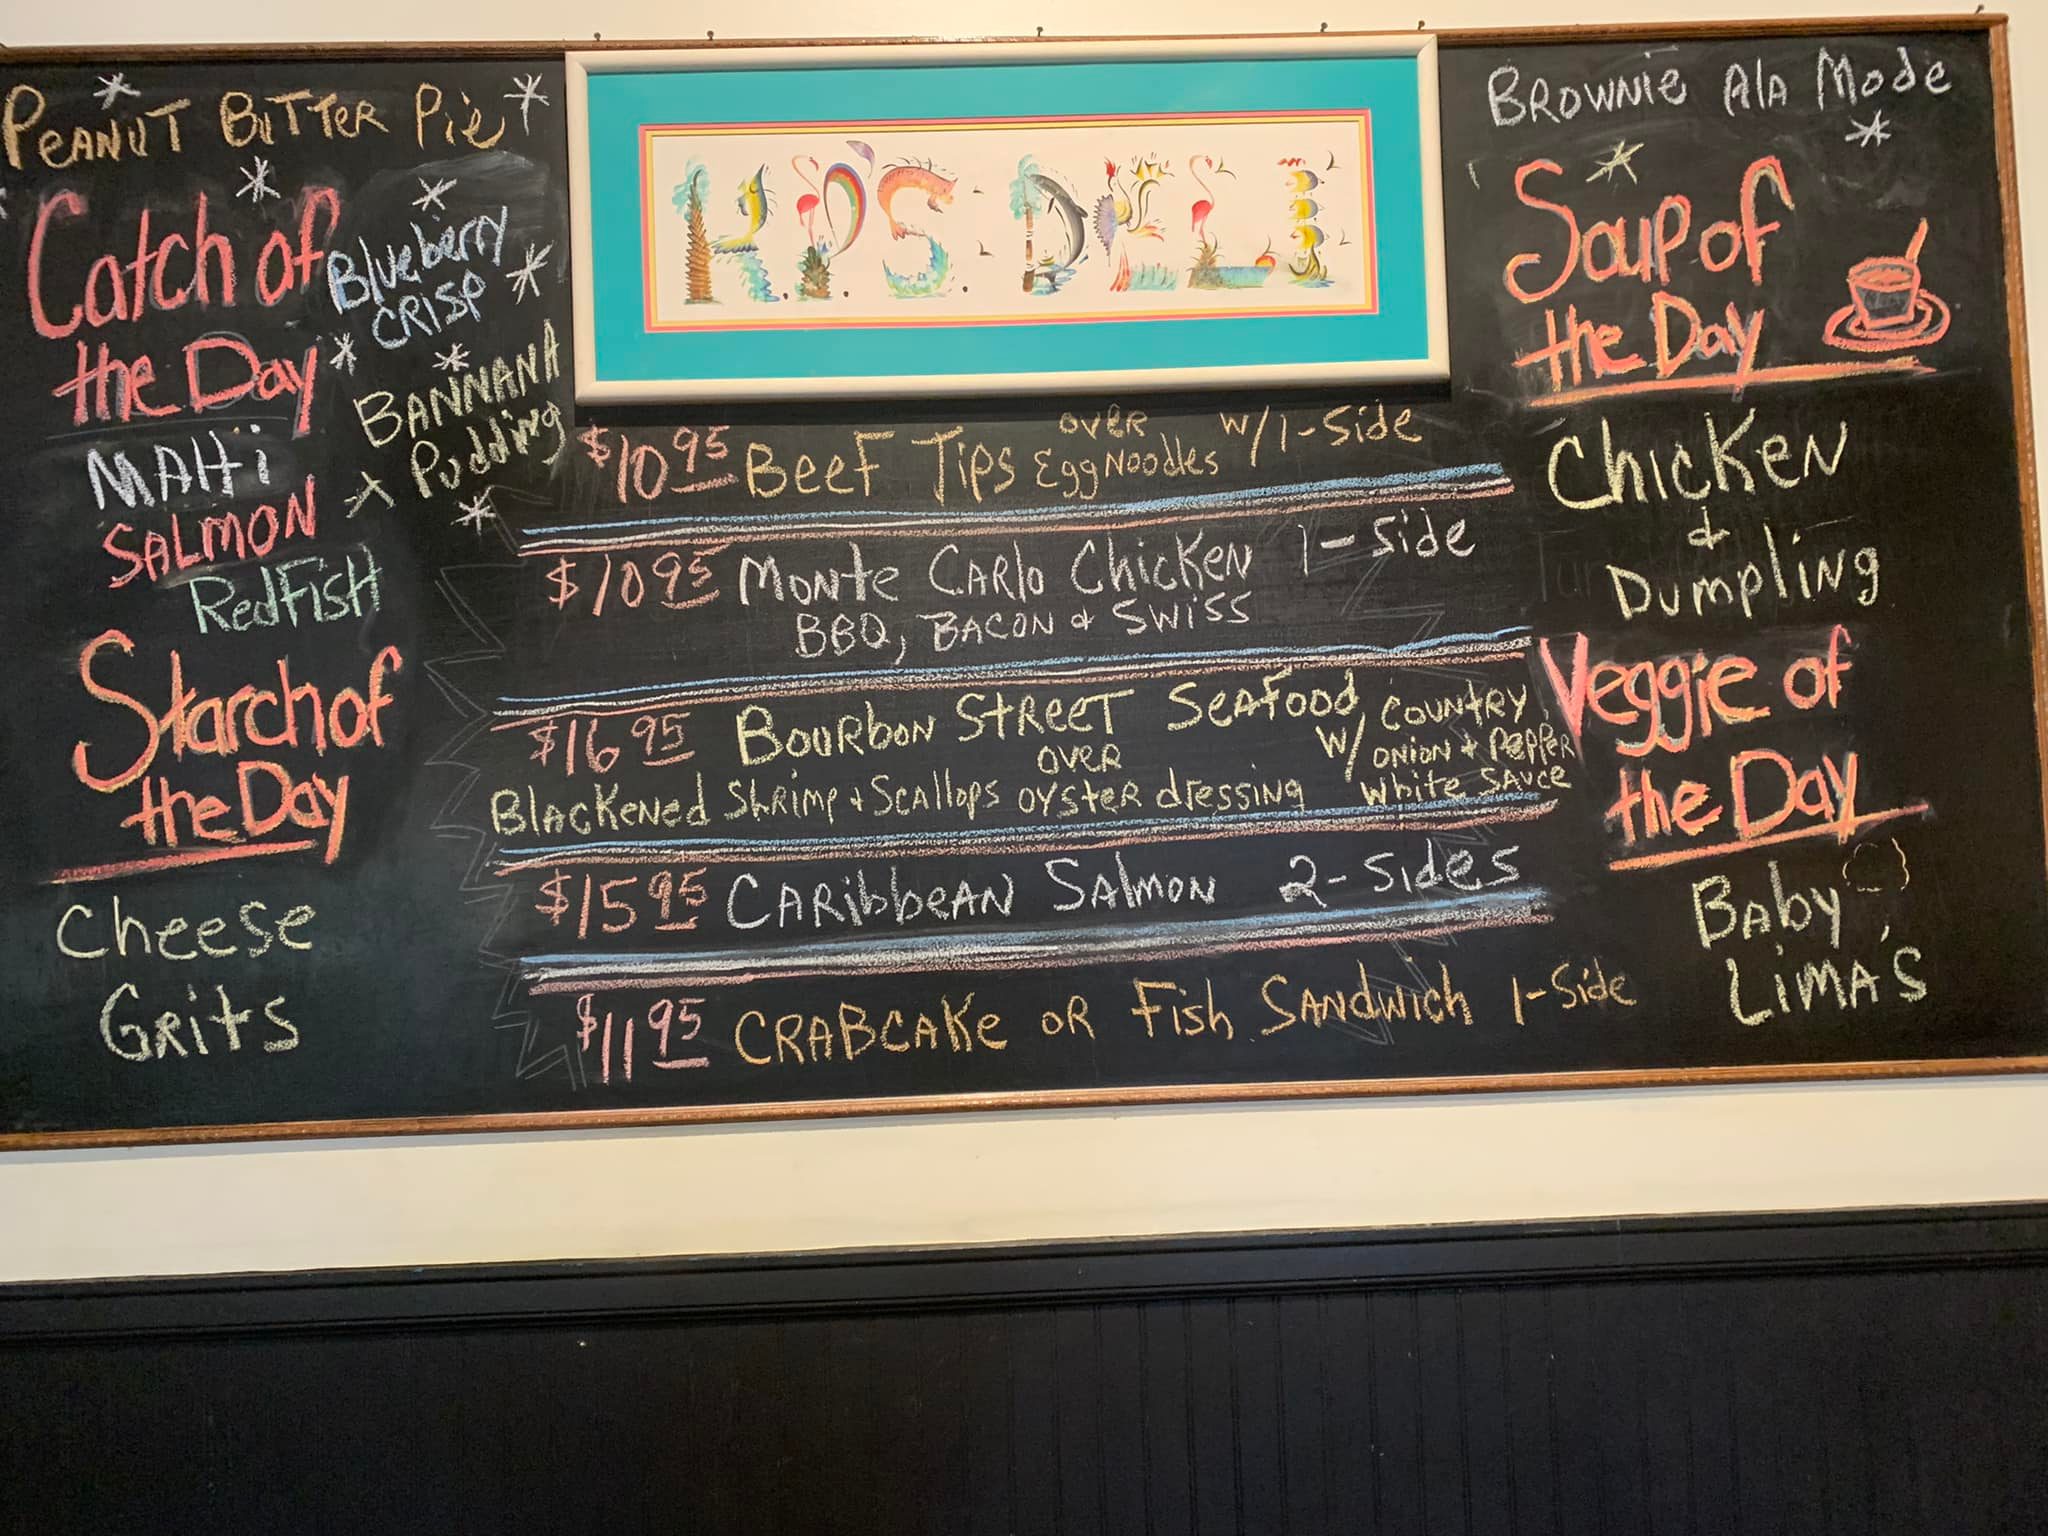 Peanut Butter Pie
Catch of
the Day
Blueberry
Crisp
Bannana
Pudding
Mahi
Salmon
RedFish
Starch of
the Day
Cheese
Grits
H.D.S DELI
$10.95 Beef Tips over Egg Noodles w/ 1-Side
$10.95 Monte Carlo Chicken 1-Side
BBQ, Bacon & Swiss
$16.95 Bourbon Street Seafood
Blackened Shrimp & Scallops over oyster dressing
w/ Country
onion & pepper
white sauce
$15.95 Caribbean Salmon 2-Sides
$11.95 Crabcake or Fish Sandwich 1-Side
Brownie Ala Mode
Soup of
the Day
Chicken
&
Dumpling
Veggie of
the Day
Baby
Lima's